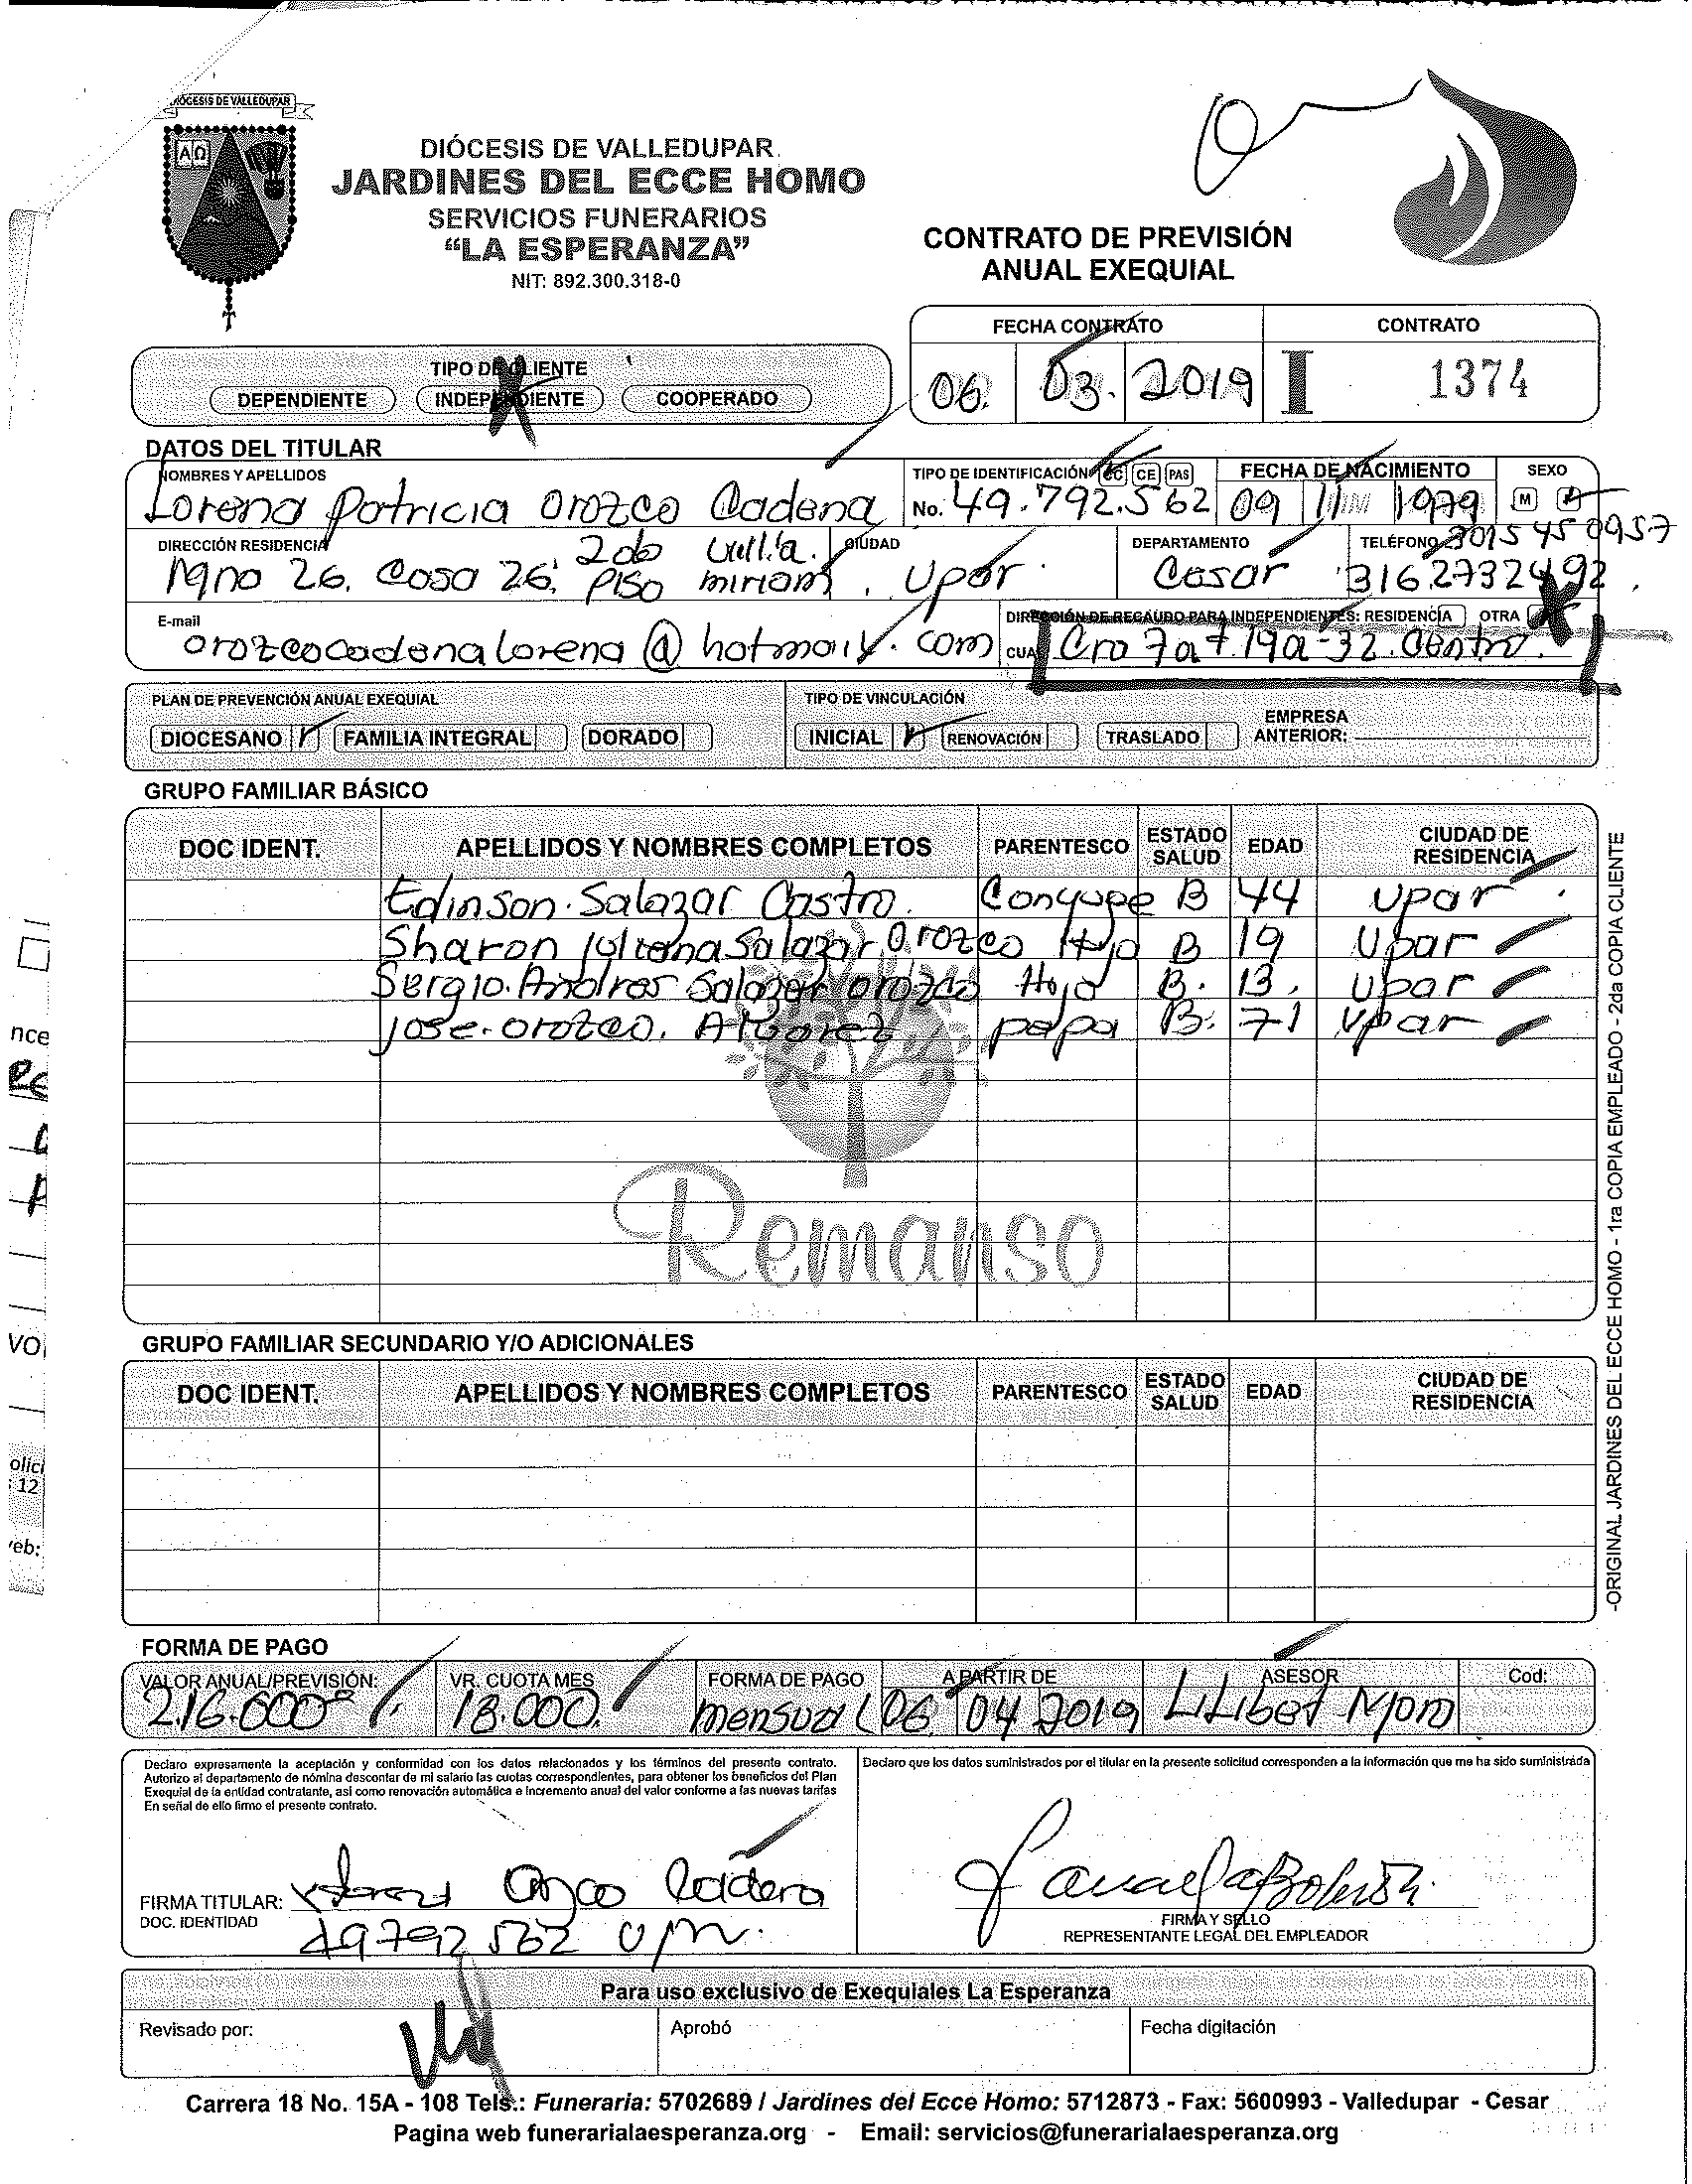 DIÓCESIS DE VALLEDUPAR
DIÓCESIS DE VALLEDUPAR
JARDINES DEL ECCE HOMO
SERVICIOS FUNERARIOS
“LA ESPERANZA”
NIT: 892.300.318-0
CONTRATO DE PREVISIÓN
ANUAL EXEQUIAL
FECHA CONTRATO CONTRATO
06. 03. 2019 I 1374
TIPO DE CLIENTE
DEPENDIENTE INDEPENDIENTE COOPERADO
DATOS DEL TITULAR
NOMBRES Y APELLIDOS TIPO DE IDENTIFICACIÓN CC CE PAS FECHA DE NACIMIENTO SEXO
Lorena Patricia Orozco Cadena No. 49.792.562 09 11 1979 M
DIRECCIÓN RESIDENCIA CIUDAD DEPARTAMENTO TELÉFONO 3015450957
26. Casa 26. 2do Piso miriam. Upar. Cesar 3162732492
E-mail DIRECCIÓN DE RECAUDO PARA INDEPENDIENTES: RESIDENCIA OTRA
orozcocadenalorena@hotmail.com CUAL Cra 7a # 19a-32. Centro.
PLAN DE PREVENCIÓN ANUAL EXEQUIAL TIPO DE VINCULACIÓN
DIOCESANO FAMILIA INTEGRAL DORADO INICIAL RENOVACIÓN TRASLADO EMPRESA ANTERIOR:
GRUPO FAMILIAR BÁSICO
DOC IDENT. APELLIDOS Y NOMBRES COMPLETOS PARENTESCO ESTADO SALUD EDAD CIUDAD DE RESIDENCIA
Edinson. Salazar Castro. Conyuge B 44 Upar.
Sharon Juliana Salazar Orozco Hija B 19 Upar
Sergio. Andres Salazar Orozco Hijo B. 13. Upar
Jose. Orozco. Alvarez papa B. 71 Upar
Remanso
GRUPO FAMILIAR SECUNDARIO Y/O ADICIONALES
DOC IDENT. APELLIDOS Y NOMBRES COMPLETOS PARENTESCO ESTADO SALUD EDAD CIUDAD DE RESIDENCIA
-ORIGINAL JARDINES DEL ECCE HOMO - 1ra COPIA EMPLEADO - 2da COPIA CLIENTE
FORMA DE PAGO
VALOR ANUAL/PREVISIÓN: VR. CUOTA MES FORMA DE PAGO A PARTIR DE ASESOR Cod:
216.000 18.000. mensual 06 04 2019 Lilibet
Declaro expresamente la aceptación y conformidad con los datos relacionados y los términos del presente contrato.
Autorizo al departamento de nómina descontar de mi salario las cuotas correspondientes, para obtener los beneficios del Plan
Exequial de la entidad contratante, asi como renovación automática e incremento anual del valor conforme a las nuevas tarifas
En señal de ello firmo el presente contrato.
Declaro que los datos suministrados por el titular en la presente solicitud corresponden a la información que me ha sido suministrada
FIRMA TITULAR: Orozco Cadena
DOC. IDENTIDAD 49792562
FIRMA Y SELLO
REPRESENTANTE LEGAL DEL EMPLEADOR
Para uso exclusivo de Exequiales La Esperanza
Revisado por: Aprobó Fecha digitación
Carrera 18 No. 15A - 108 Tels.: Funeraria: 5702689 / Jardines del Ecce Homo: 5712873 - Fax: 5600993 - Valledupar - Cesar
Pagina web funerarialaesperanza.org - Email: servicios@funerarialaesperanza.org